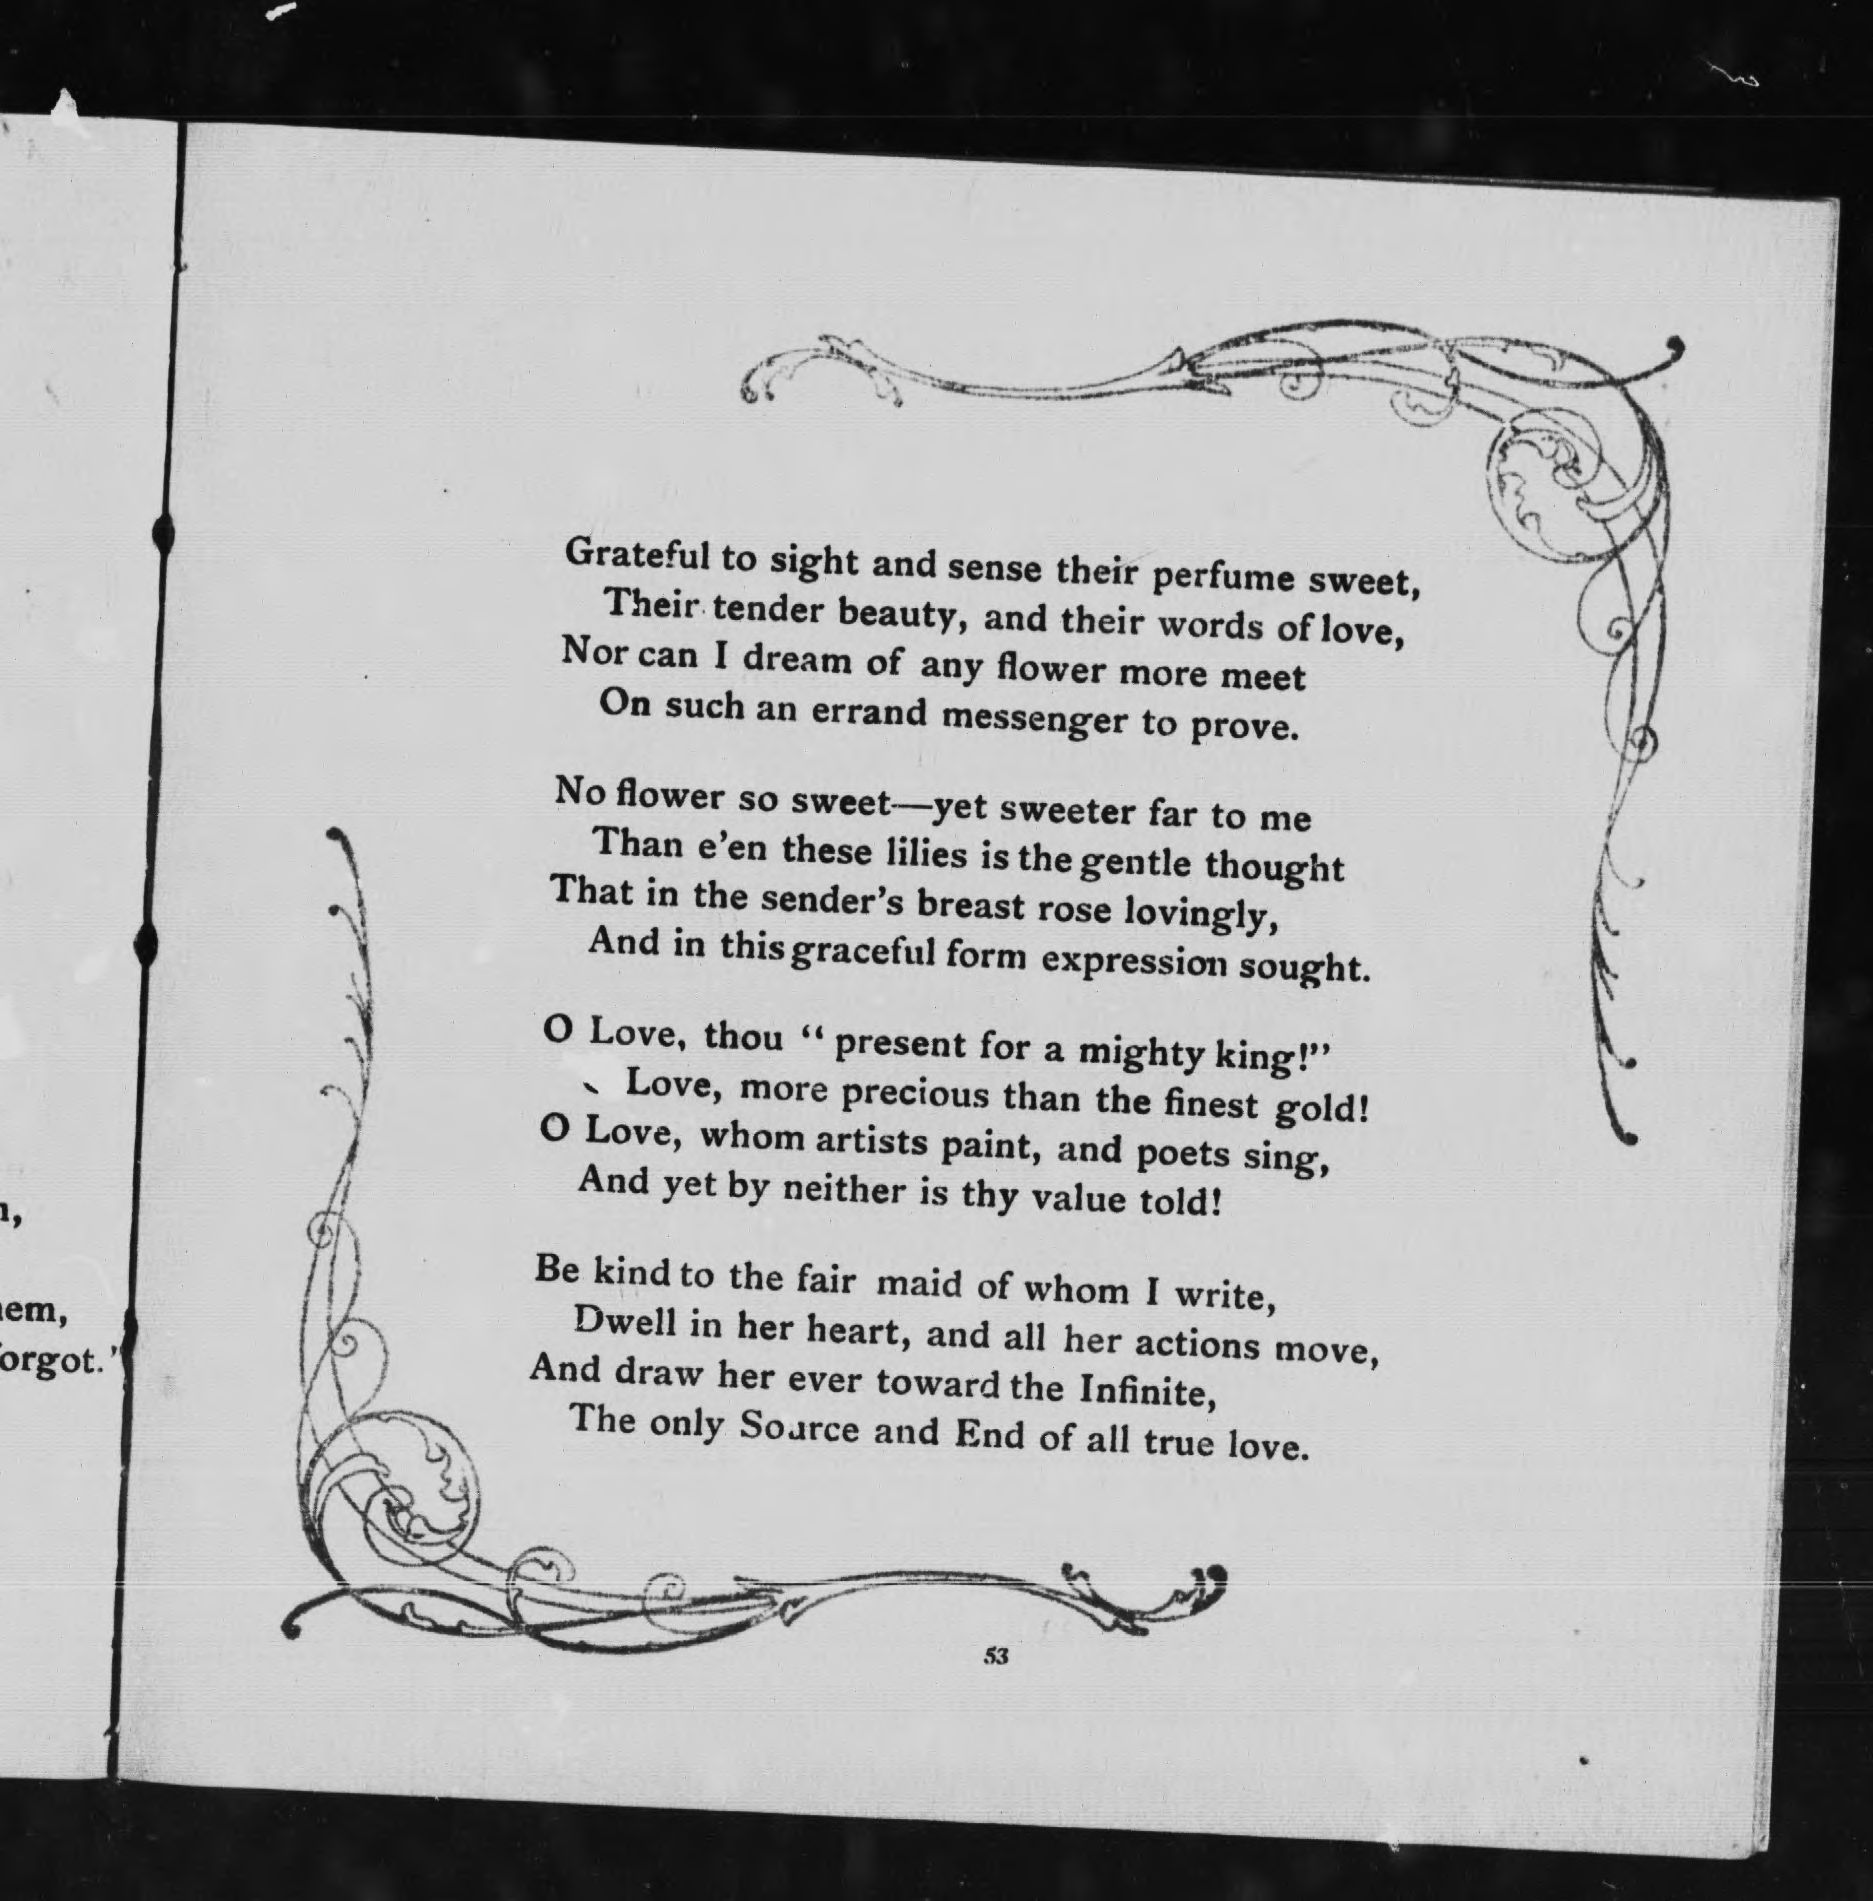 hem,
forgot."
Grateful to sight and sense their perfume sweet,
Their tender beauty, and their words of love,
Nor can I dream of any flower more meet
On such an errand messenger to prove.
No flower so sweet—yet sweeter far to me
Than e'en these lilies is the gentle thought
That in the sender's breast rose lovingly,
And in this graceful form expression sought.
O Love, thou " present for a mighty king!"
Love, more precious than the finest gold!
O Love, whom artists paint, and poets sing,
And yet by neither is thy value told!
Be kind to the fair maid of whom I write,
Dwell in her heart, and all her actions move,
And draw her ever toward the Infinite,
The only Source and End of all true love.
53